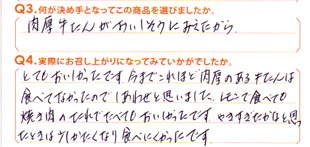 Q3.何が決め手となってこの商品を選びましたか。
肉厚牛たんがおいしそうにみえたから
Q4.実際にお召し上がりになってみていかがでしたか。
とてもおいしかったです 今までこれほど肉厚のある牛たんは
食べてなかったのでしあわせと思いました。レモンで食べても
焼き肉のたれでたべてもおいしかったです やきすぎたかなと思っ
たときは少しかたくなり食べにくかったです